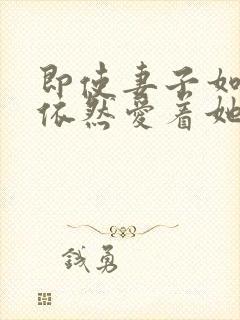 即使妻子如
依然爱着她
钱勇